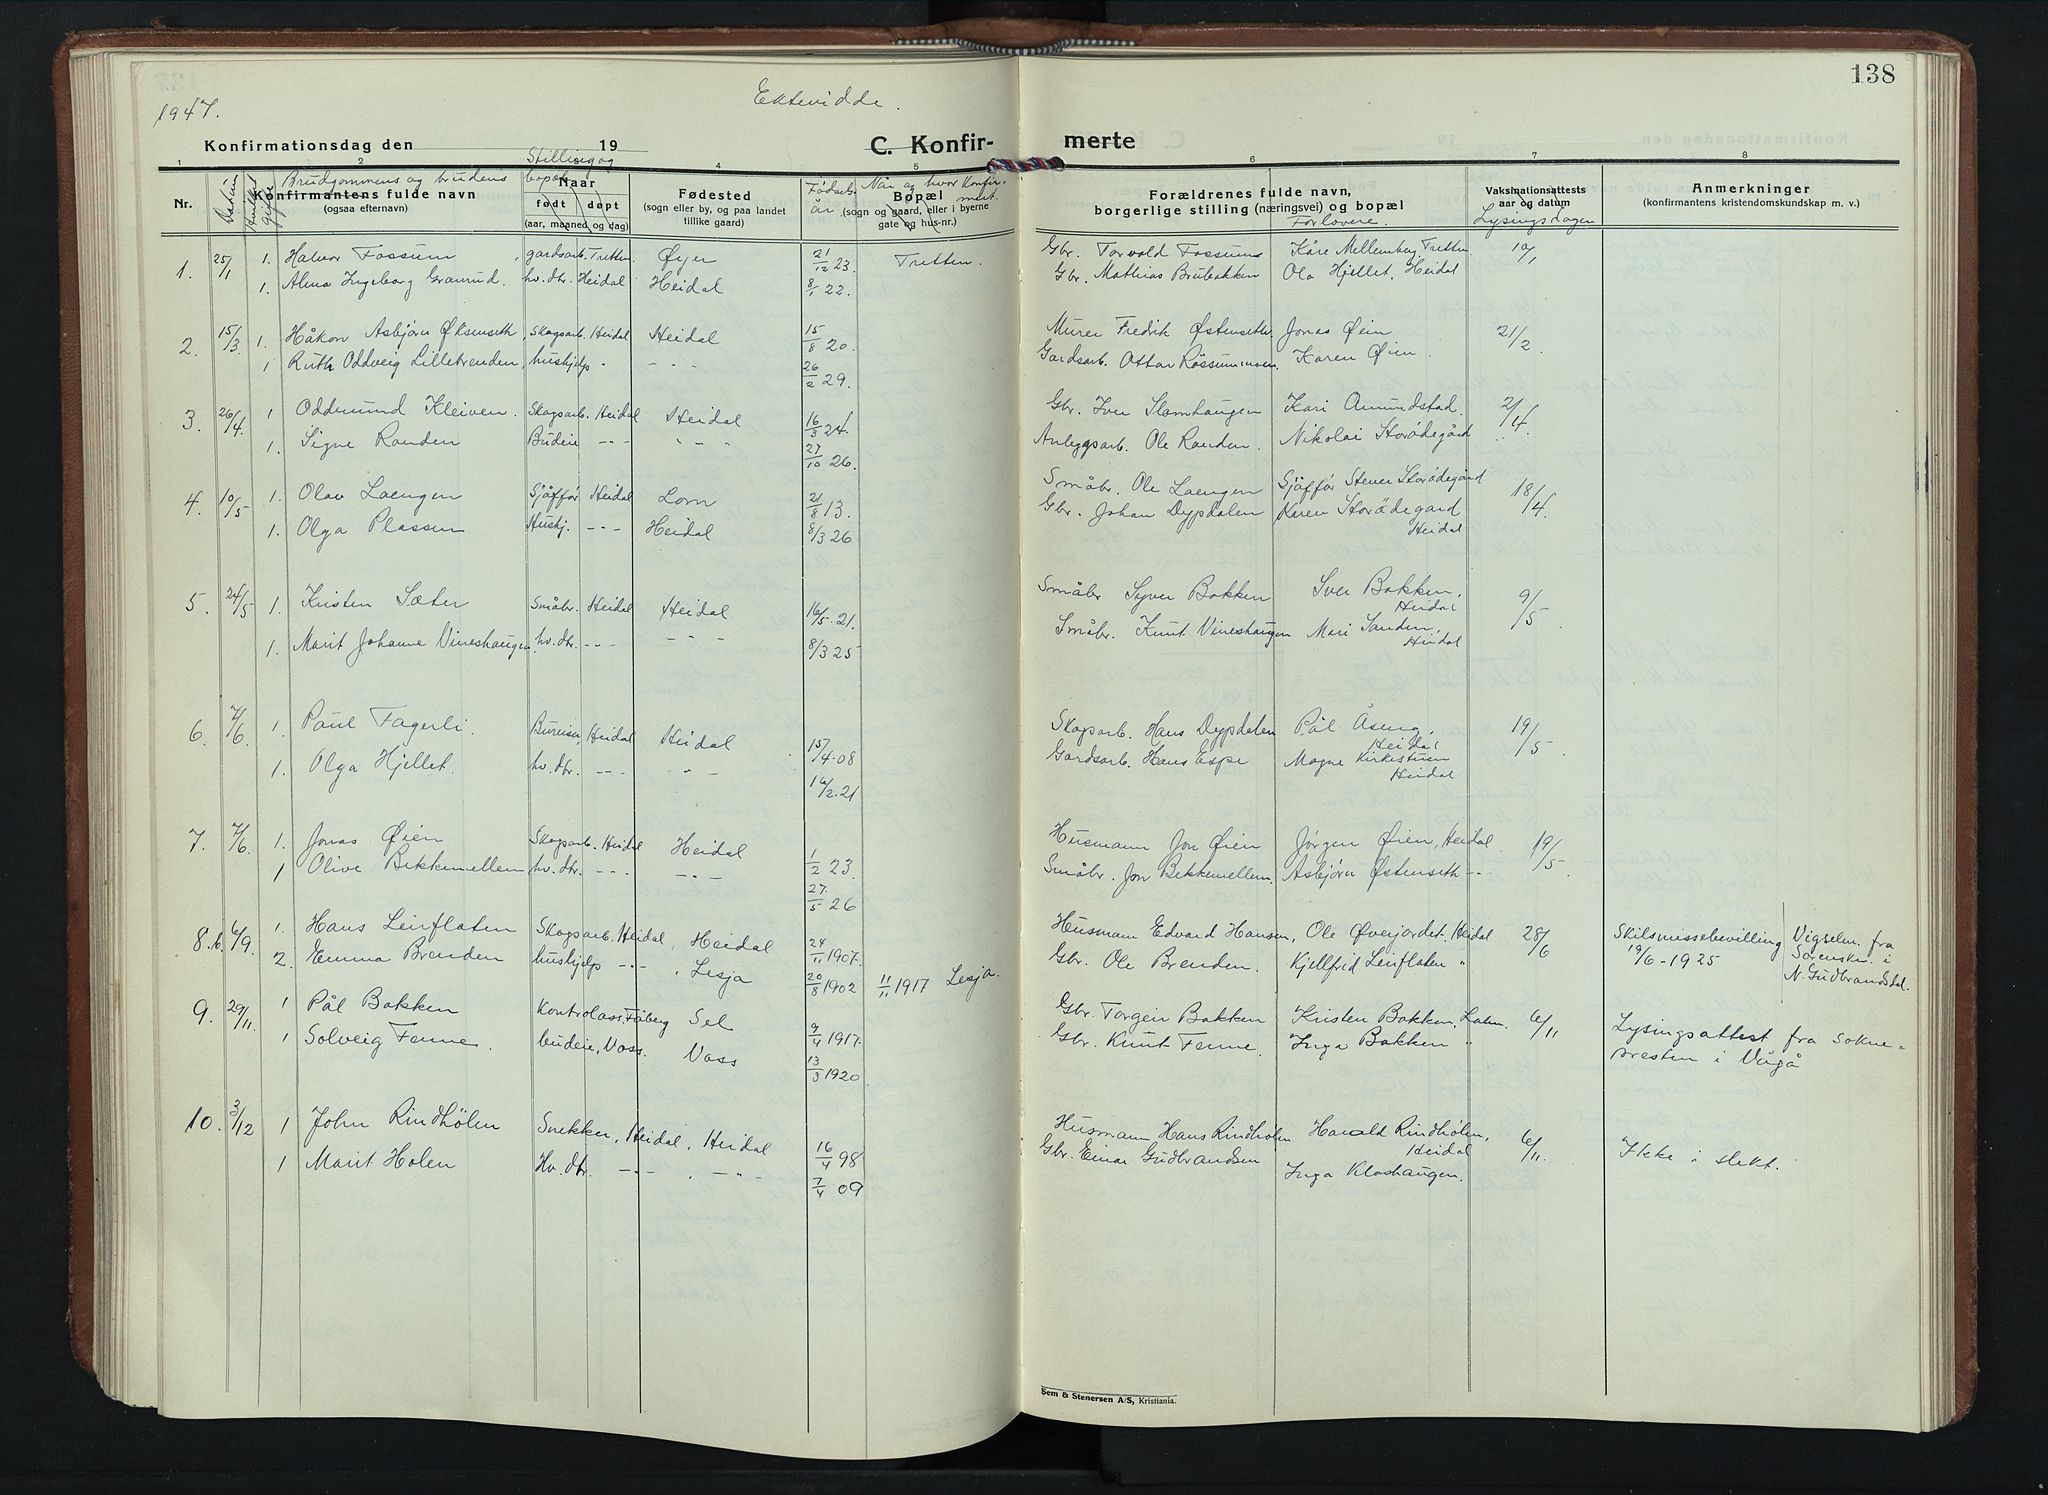 138
1947. Ektevidde.
Konfirmationsdag den 19 C. Konfir- merte
1 2 4 5 6 7 8
Nr. Hvilket gifte Brudgommens og brudens Konfirmantens fulde navn (ogsaa efternavn)
Stilling og bopæl Naar født døpt (aar, maaned og dag)
Fødested (sogn eller by, og paa landet tillike gaard)
Fødsels år Når og hvor konfirmert. Bopæl (sogn og gaard, eller i byerne gate og hus-nr.)
Forældrenes fulde navn, borgerlige stilling (næringsvei) og bopæl Forlovere
Vaksinationsattests aar og datum Lysingsdagen
Anmerkninger (konfirmantens kristendomskundskap m. v.)
1. 25/1 1. Halvor Fossum, gardsarb. Tretten Øyer 21/12 23. Tretten. Gbr. Torvald Fossum Kåre Mellemberg, Tretten 10/1
1. Alma Ingeborg Gramrud. hv. dtr. Heidal Heidal 8/1 22. Gbr. Mathias Brubakken Ola Hjellet, Heidal
2. 15/3 1. Håkon Asbjørn Østenseth, Skogsarb. Heidal Heidal 15/8 20. Murer Fredrik Østenseth Jonas Øien 21/2.
1 Ruth Oddveig Lillebrenden, hushjelp - - - - 26/2 29. Gardsarb. Ottar Røssummoen Karen Øien.
3. 26/4 1 Oddmund Kleiven. Skogsarb. Heidal Heidal 16/3 24. Gbr. Iver Slomhaugen Kari Amundstad. 2/4
1. Signe Randen Budeie - - - " " " 27/10 26. Anleggsarb. Ole Randen. Nikolai Storødegård
4. 10/5 1. Olav Loengen Sjåffør Heidal Lom 21/8 13. Småbr. Ole Loengen Sjåffør Stener Storødegård 18/4.
1. Olga Plassen Hushj. - - - Heidal 8/3 26 Gbr. Johan Dypdalen Karen Storødegard Heidal
5. 24/5 1. Kristen Sæter Småbr. Heidal Heidal 16/5. 21. Småbr Syver Bakken Iver Bakken, Heidal 9/5.
1. Marit Johanne Vineshaugen hv. dtr. - - - - " - 8/3 25 Småbr. Knut Vineshaugen Mari Sanden, Heidal
6. 7/6 1. Paul Fagerli. Bureiser, Heidal Heidal 15/4. 08 Skogsarb. Hans Dypdalen Pål Åseng, Heidal 19/5
1. Olga Hjellet. hv. dtr. - - - " " 16/2. 21 Gardsarb. Hans Espe Magne Kirkestuen Heidal
7. 7/6 1. Jonas Øien Skogsarb. Heidal Heidal 1/2 23. Husmann Jon Øien Jørgen Øien, Heidal 19/5.
1 Olive Bekkemellem hv. dtr. - - - - " - 27/5 26 Småbr. Jon Bekkemellem. Asbjørn Østenseth - " -
8. 6/9. 1. Hans Leirflaten Skogsarb. Heidal, Heidal 24/11 1907. Husmann Edvard Hansen, Ole Øverjordet, Heidal 28/6 Skilsmissebevilling 19/6 - 1925 Vigselm. fra Sorenskr. i N. Gudbrandsdal.
2. Emma Brenden hushjelp - " - Lesja 20/8 1902 11/11 1917 Lesja. Gbr. Ole Brenden. Kjellfrid Leirflaten "
9. 29/11. 1 Pål Bakken Kontrolass. Fåberg Sel 9/4 1917. Gbr. Torgeir Bakken Kristen Bakken, Lalm. 6/11 Lysingsattest fra sokne=
1 Solveig Fenne. budeie, Voss. Voss 13/3 1920 Gbr. Knut Fenne. Inga Bakken " presten i Vågå
10. 3/12 1 John Rindhölen Snekker, Heidal, Heidal 16/4 98 Husmann Hans Rindholen Harald Rindhølen, Heidal 6/11. Ikke i slekt.
1 Marit Holen Hv. dtr. - - - - " - 7/4 09 Gbr. Einar Gudbrandsen Inga Kloshaugen.
Sem & Stenersen A/S, Kristiania.